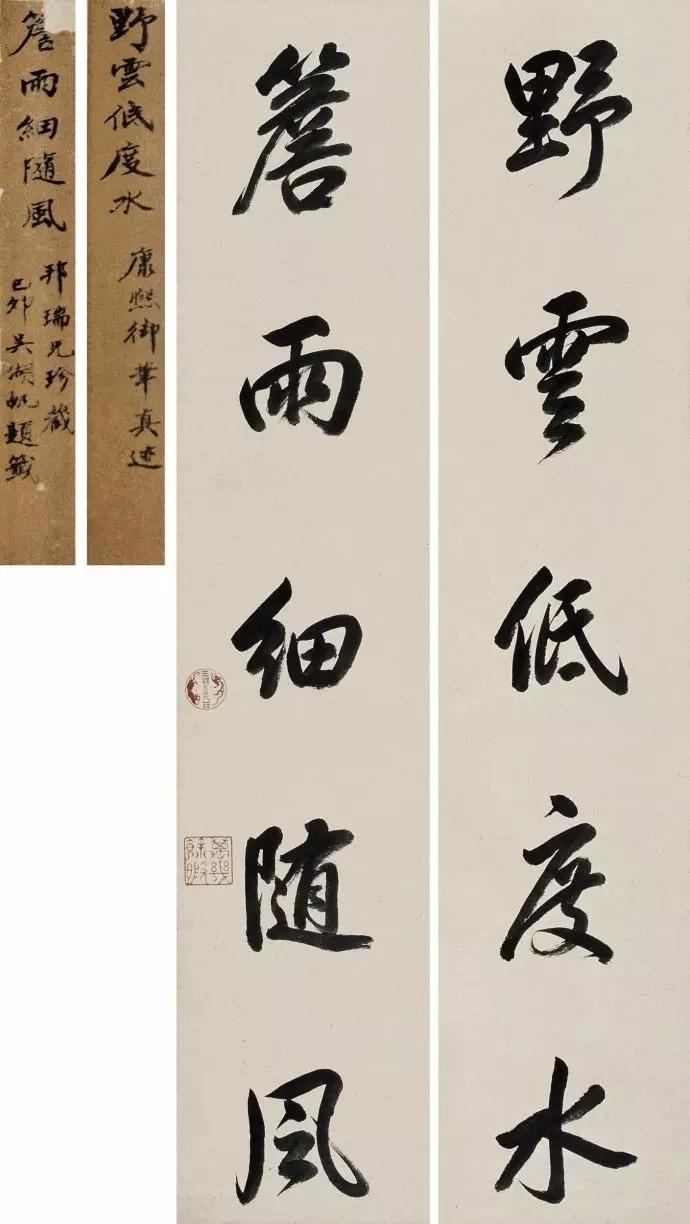 野雲低度水
簷雨細随風
萬幾餘暇
野雲低度水
康熙御筆真迹
簷雨細隨風
邦瑞兄珍藏
己卯吳湖帆題籤